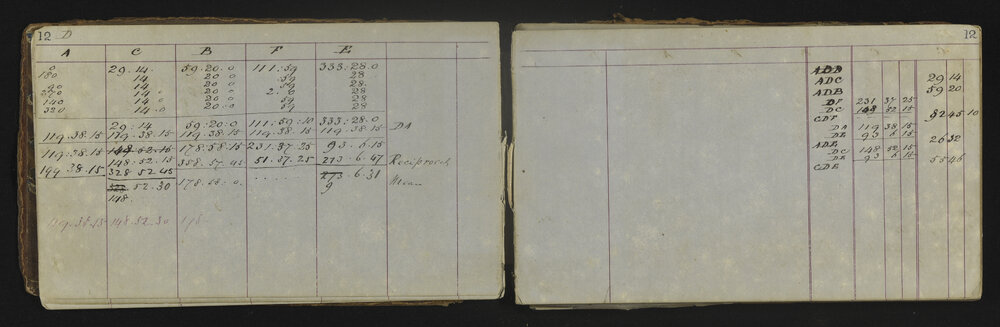 12 D
A C B F E
0 29.14. 59.20.0 111:59 333:28.0
180 14 20 0 59 28
90 14 20 0 59 28
270 14 20 0 2.0 28
140 14 0 20 0 59 28
320 14.0 20.0 59 28
29:14 59:20:0 111:59:10 333:28:0
119.38.15 119.38.15 119.38.15 119.38.15 119.38.15 DA
119.38.15 148.52.15 178:58:15 231:37:25 93.6.15
148:52.15 358.57.45 51.37.25 273.6.47 Reciprocal
199.38.15 328 52 45 273.6.31 Mean
52.30 178.58:0. 9
148.
119.38.15 148.52.30 178
12
ADB
ADC 29 14
ADB 59 20
DF 231 37 25
DC 148 52 15
CDF 82 45 10
DA 119 38 15
DE 93 6 15
ADE 26 32
DC 148 52 15
DE 93 6 15
CDE 55 46